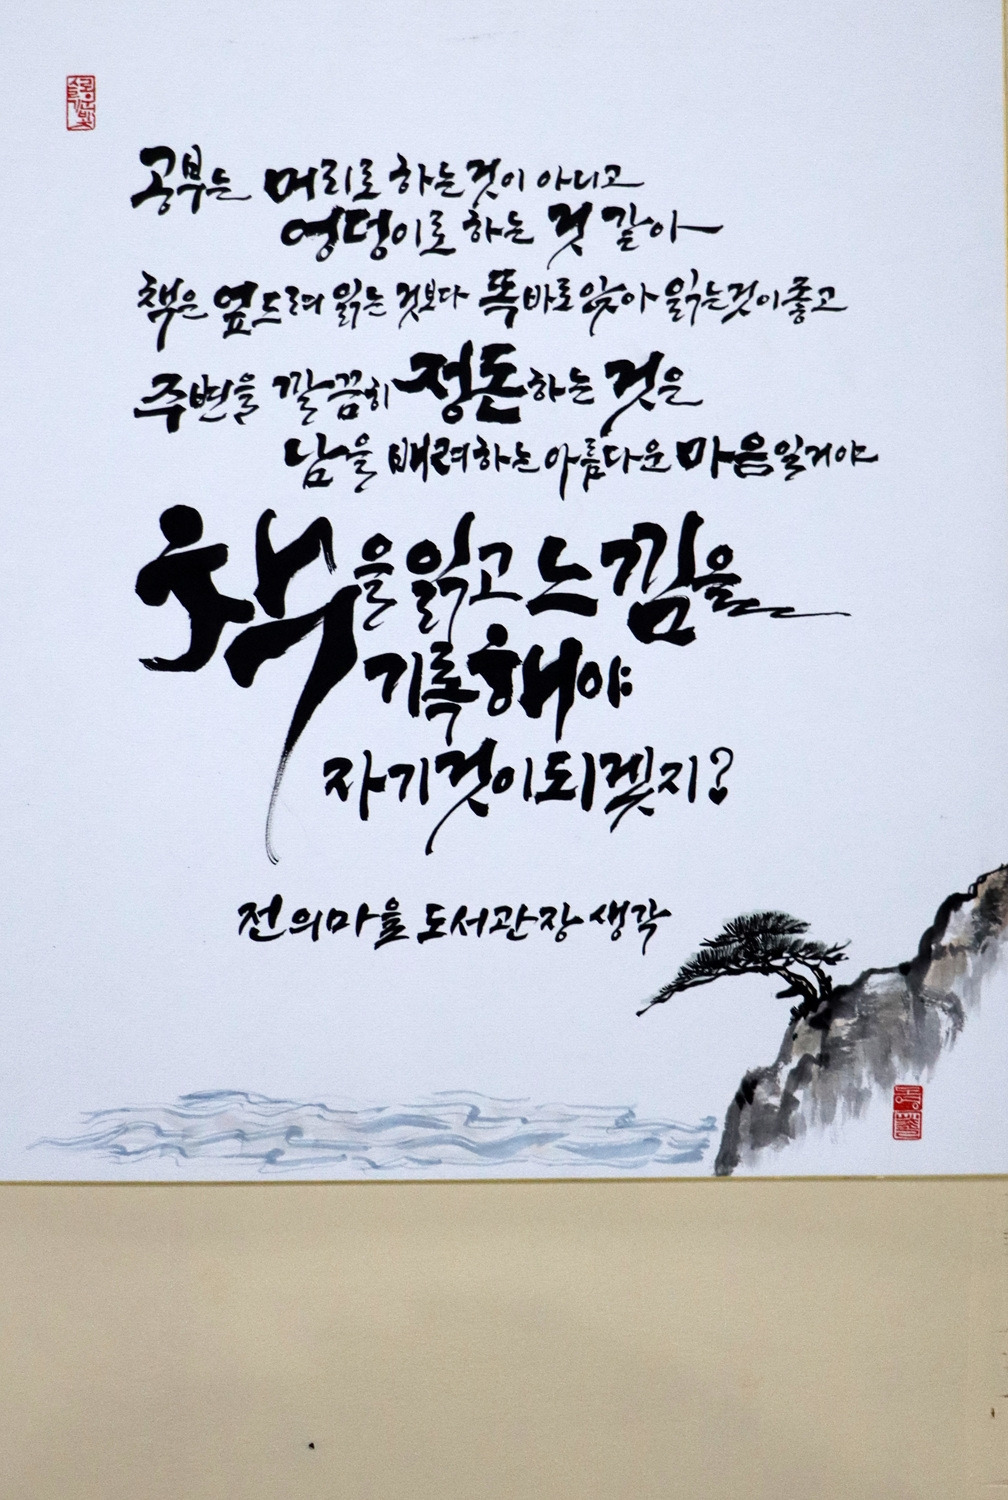 공부는 머리로 하는것이 아니고
엉덩이로 하는 것 같아
책은 엎드려 읽는 것보다 똑바로 앉아 읽는것이 좋고
주변을 깔끔히 정돈하는 것은
남을 배려하는 아름다운 마음일거야
책을 읽고 느낌을
기록해야
자기것이 되겠지?
전의마을 도서관장 생각